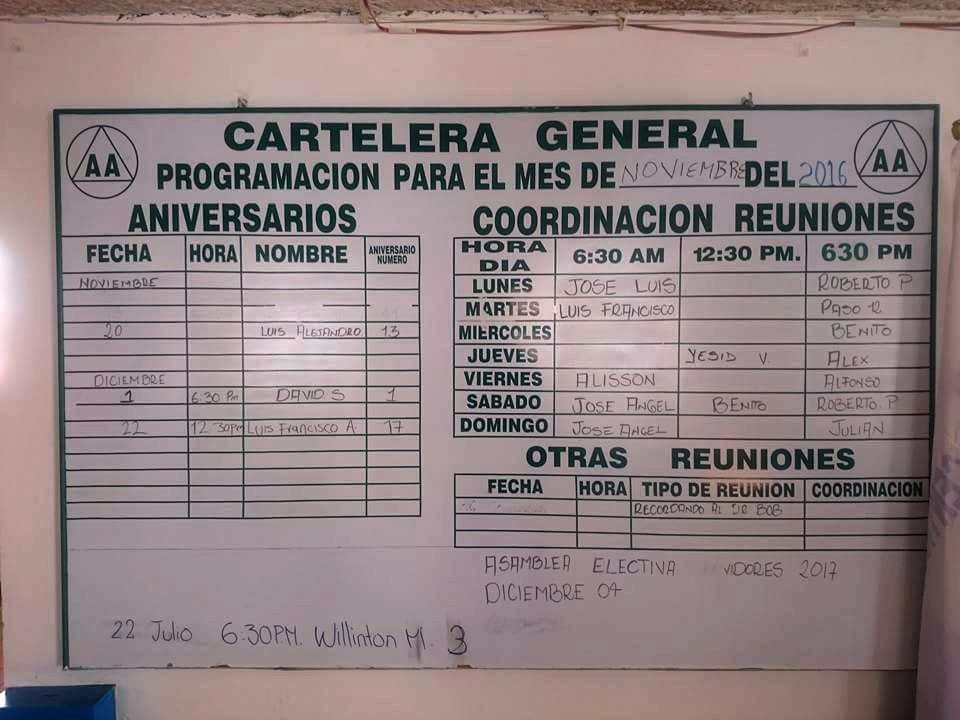 CARTELERA GENERAL
AA
AA
PROGRAMACION PARA EL MES DE NOVIEMBRE DEL 2016
ANIVERSARIOS
FECHA HORA NOMBRE ANIVERSARIO NUMERO
NOVIEMBRE
20 LUIS ALEJANDRO 13
DICIEMBRE
1 6:30 Pm DAVID S 1
22 12 30pm LUIS FRANCISCO A. 17
COORDINACION REUNIONES
HORA DIA 6:30 AM 12:30 PM. 630 PM
LUNES JOSE LUIS ROBERTO P
MARTES LUIS FRANCISCO PASO 12
MIERCOLES BENITO
JUEVES YESID V. ALEX
VIERNES ALISSON ALFONSO
SABADO JOSE ANGEL BENITO ROBERTO. P
DOMINGO JOSE ANGEL JULIAN
OTRAS REUNIONES
FECHA HORA TIPO DE REUNION COORDINACION
RECORDANDO AL DR BOB
ASAMBLEA ELECTIVA VIDORES 2017
DICIEMBRE 04
22 Julio 6:30PM. Willinton M. 3